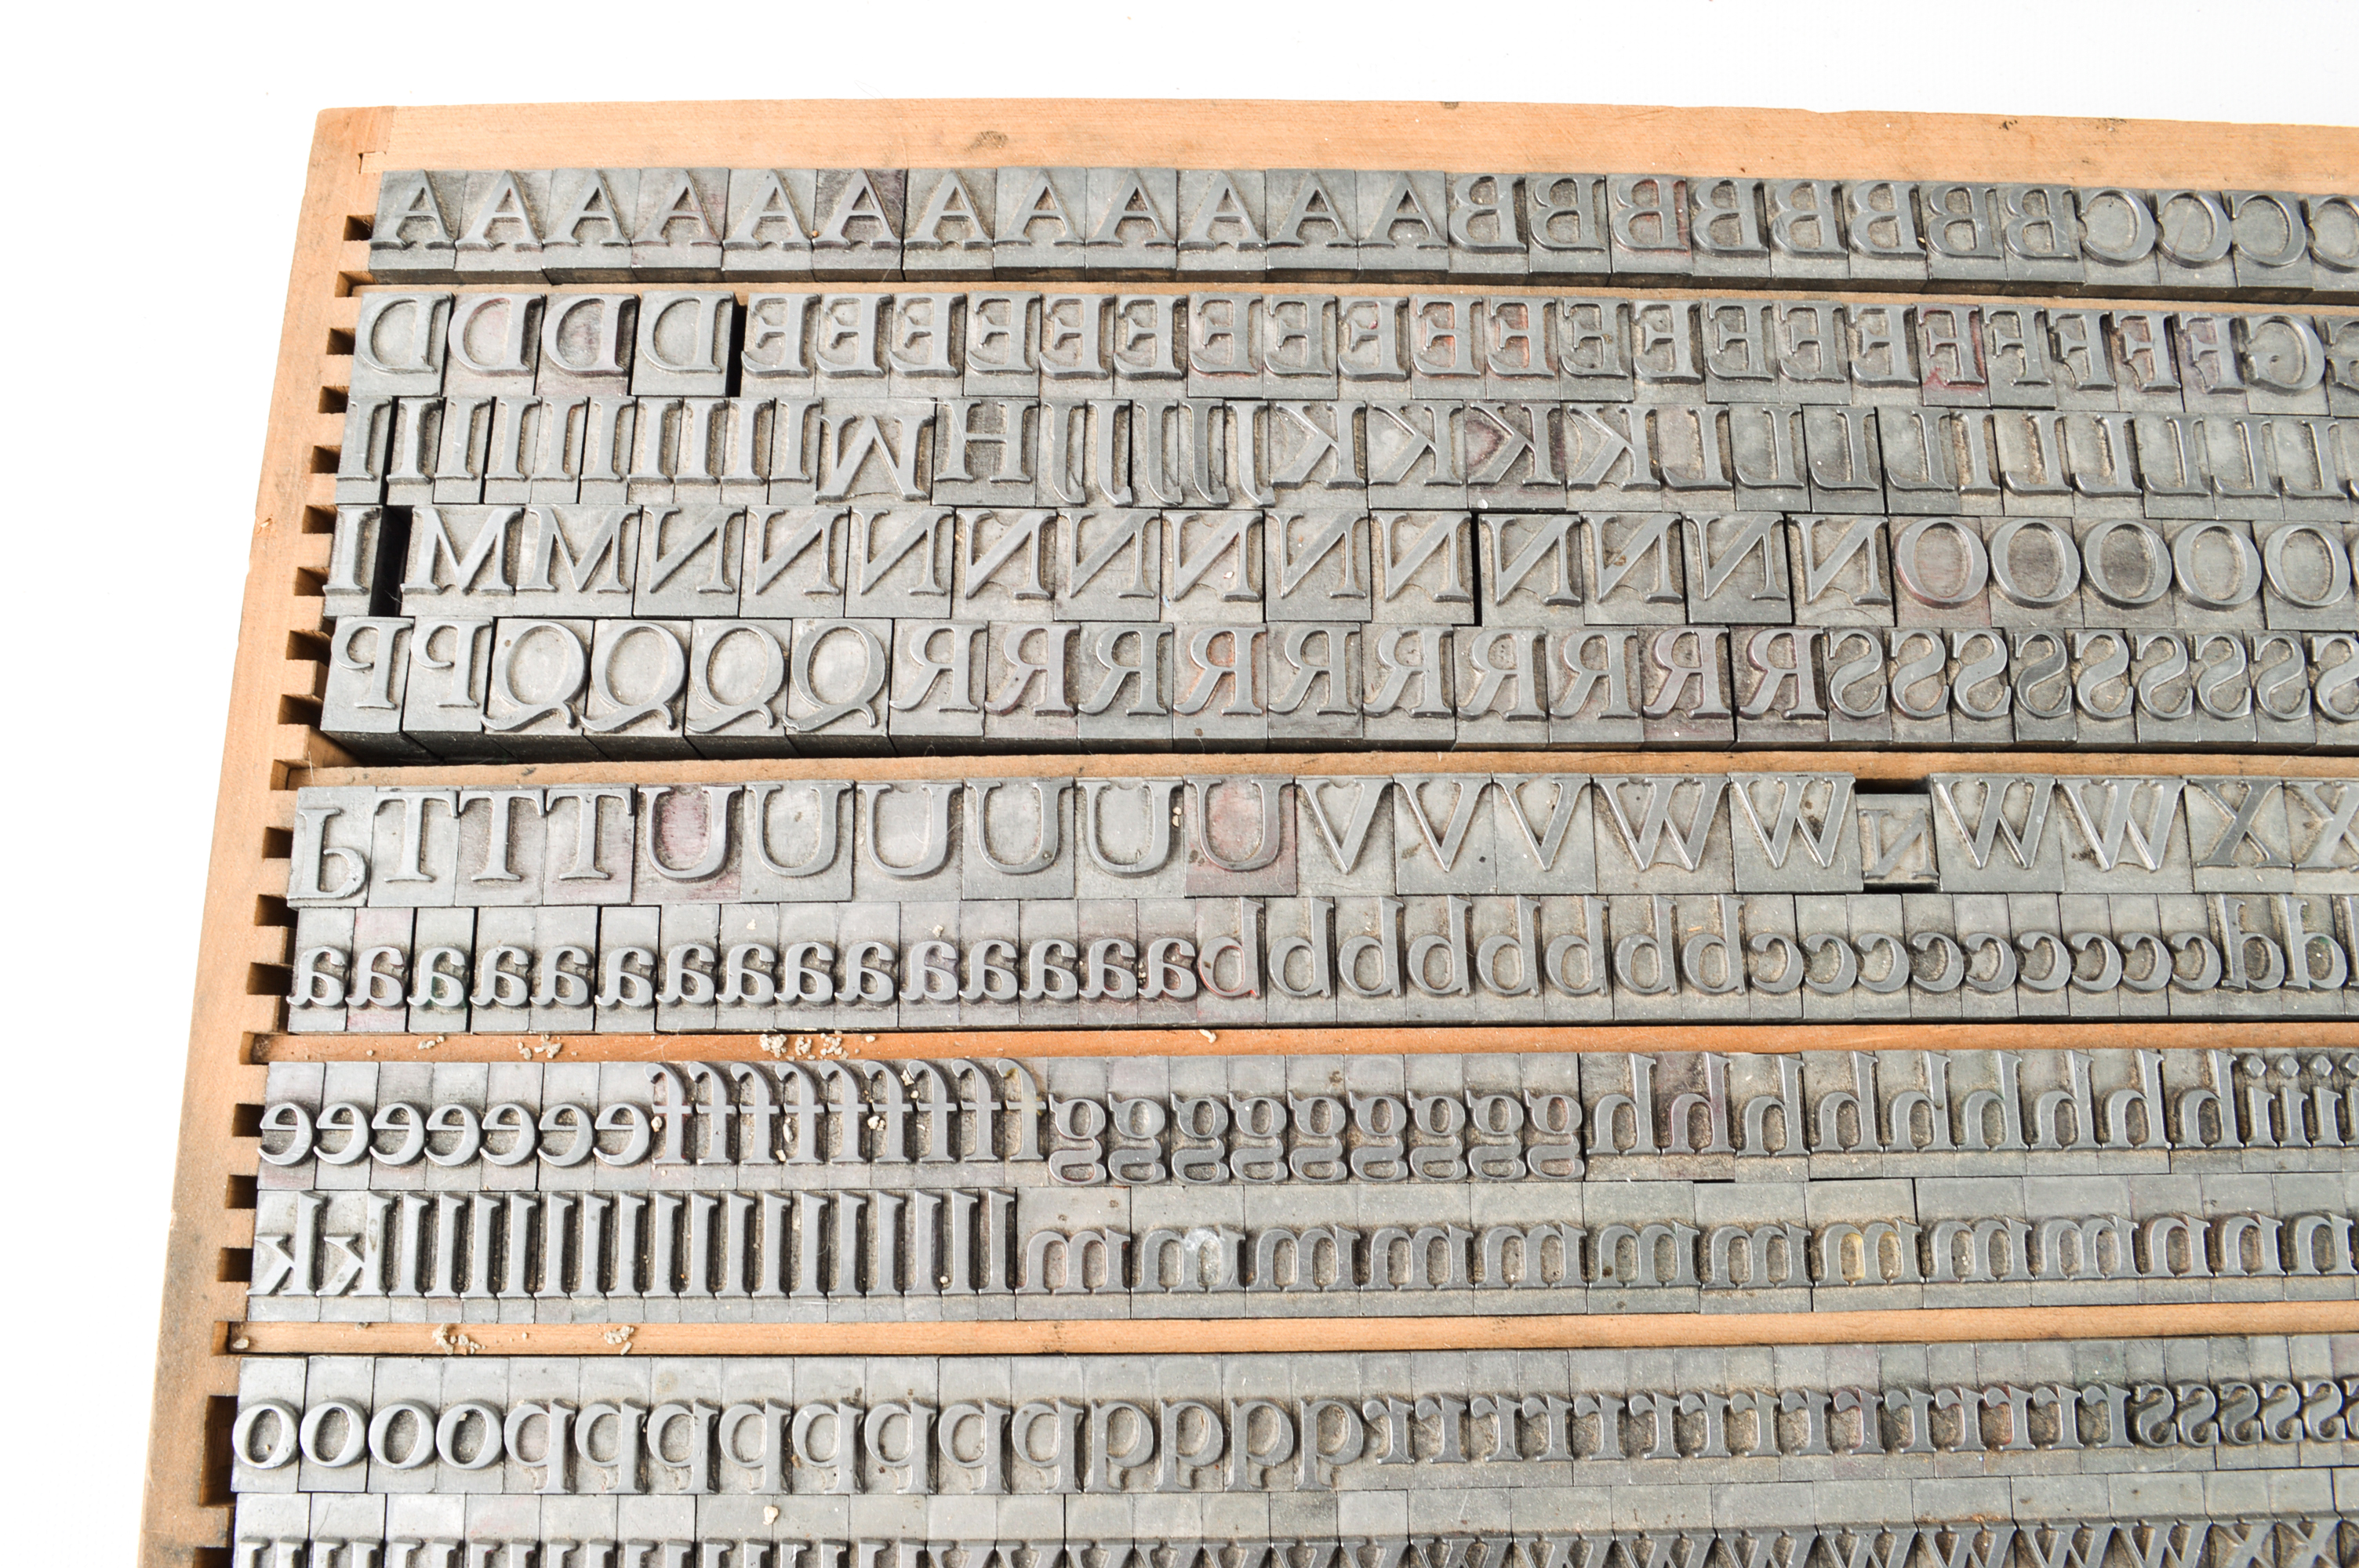 AAAAAAAAAAAABBBBBBBBCCCC
DDDDEEEEEEEEEEEEEEEEEFFFFG
IIIIIIIIIIMHJJJJJKKKKLLLLLLLLLL
IMMNNNNNNNNNNNNOOOOO
PPQQQQRRRRRRRRRRSSSSSSSSS
PTTTUUUUUUVVVWWNWWXX
aaaaaaaaaaaaaaabbbbbbbbcccccccccdd
eeeeeeefffffffffggggggggghhhhhhhhhiiii
kkllllllllllllllmmmmmmmmmmnnn
ooooppppppppqqqqrrrrrrrrrrrrrrrrsssss